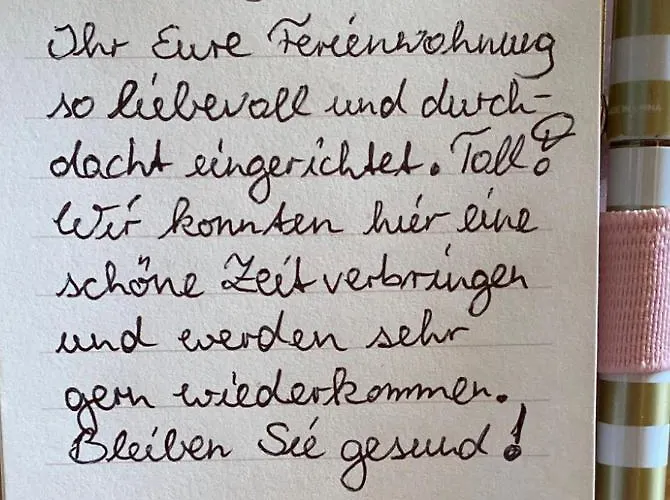 Ihr Eure Ferienwohnung
so liebevoll und durch-
dacht eingerichtet. Toll!
Wir konnten hier eine
schöne Zeit verbringen
und werden sehr
gern wiederkommen.
Bleiben Sie gesund!